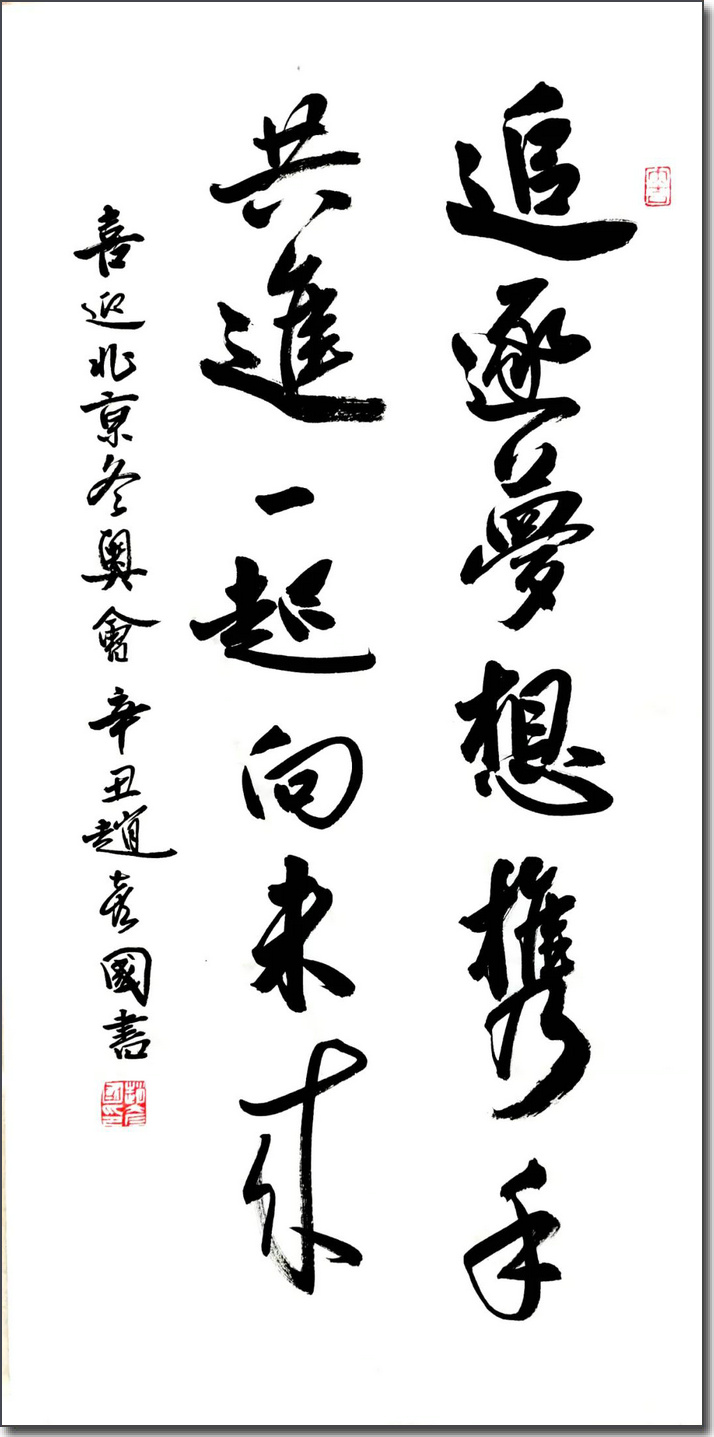 追逐夢想携手
共進一起向未来
喜迎北京冬奥會 辛丑趙彦國書